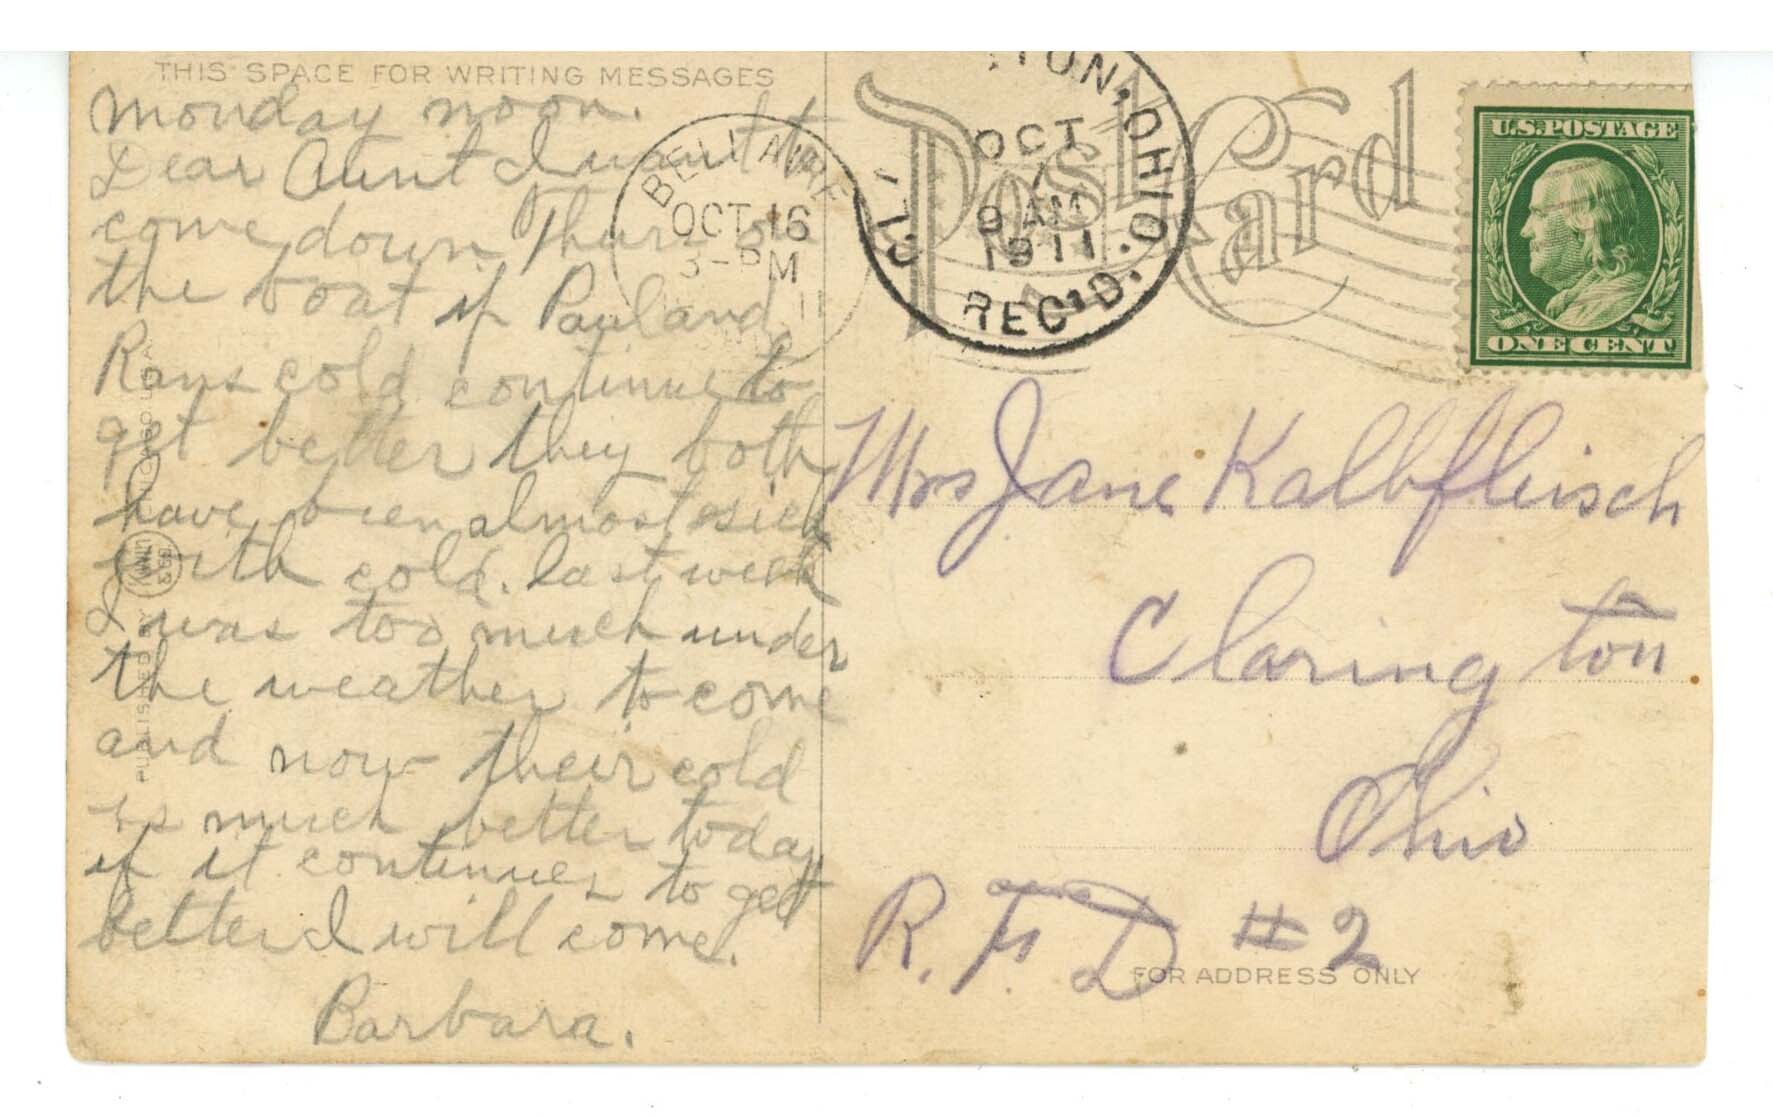 THIS SPACE FOR WRITING MESSAGES
Monday noon.
Dear Aunt I want to
come down Thurs on
the boat if Paul and
Rans cold continue to
get better they both
have been almost sick
with cold. last week
I was too much under
the weather to come
and now their cold
is much better today
if it continues to get
better I will come.
Barbara.
PUBLISHED BY
CHICAGO U.S.A.
BELLAIRE
OCT 16
3-PM
11
Post Card
TON, OHIO.
OCT
17
9 AM
1911
REC'D.
U.S. POSTAGE
ONE CENT
Mrs Jane Kalbfleisch
Clarington
Ohio
R.F.D #2
FOR ADDRESS ONLY